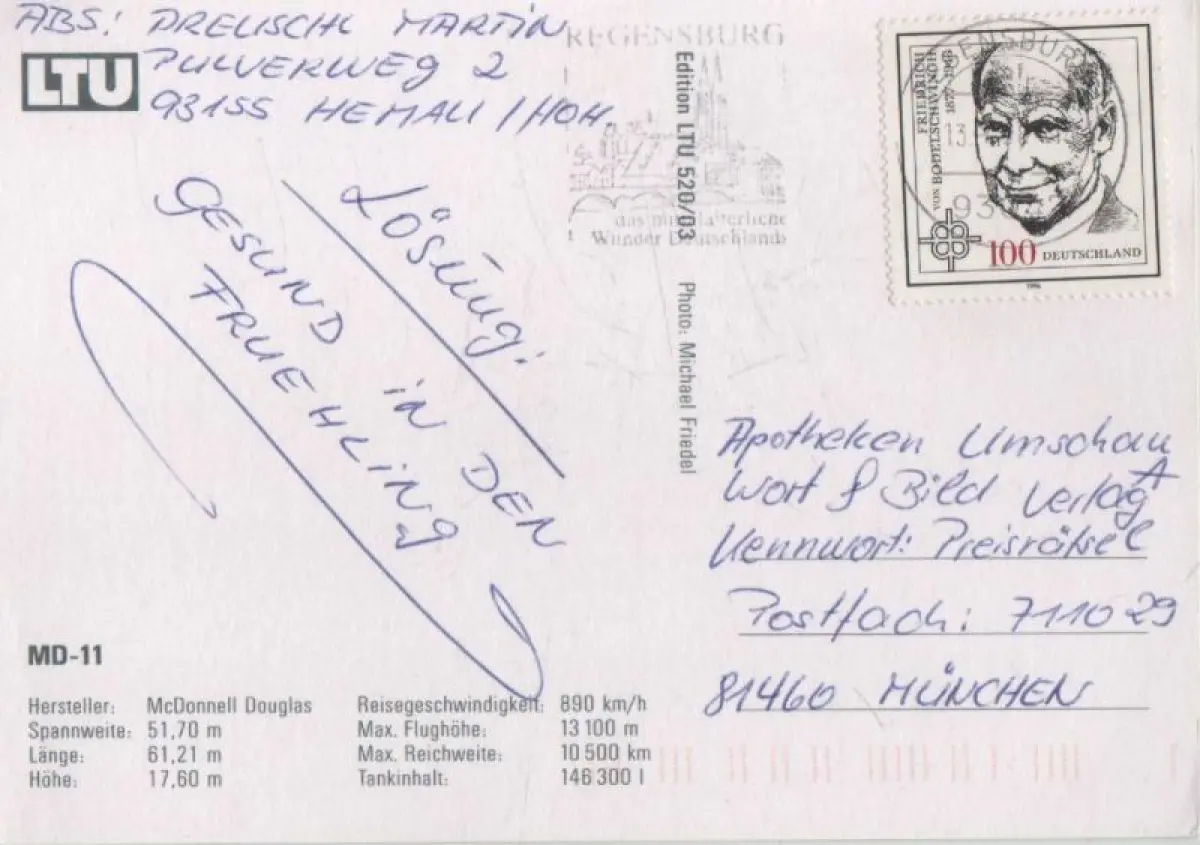 ABS: PRELISCHL MARTIN
PULVERWEG 2
93155 HEMAU / HOH.
LTU
REGENSBURG
das mittelalterliche
Wunder Deutschlands
REGENSBURG
13
93
FRIEDRICH
VON BODELSCHWINGH
1877-1946
100 DEUTSCHLAND
1996
Edition LTU 520/03
Photo: Michael Friedel
Lösung:
GESUND IN DEN
FRUEHLING
Apotheken Umschau A
Wort & Bild Verlag
Kennwort: Preisrätsel
Postfach: 711029
81460 MÜNCHEN
MD-11
Hersteller: McDonnell Douglas
Spannweite: 51,70 m
Länge: 61,21 m
Höhe: 17,60 m
Reisegeschwindigkeit: 890 km/h
Max. Flughöhe: 13 100 m
Max. Reichweite: 10 500 km
Tankinhalt: 146 300 l